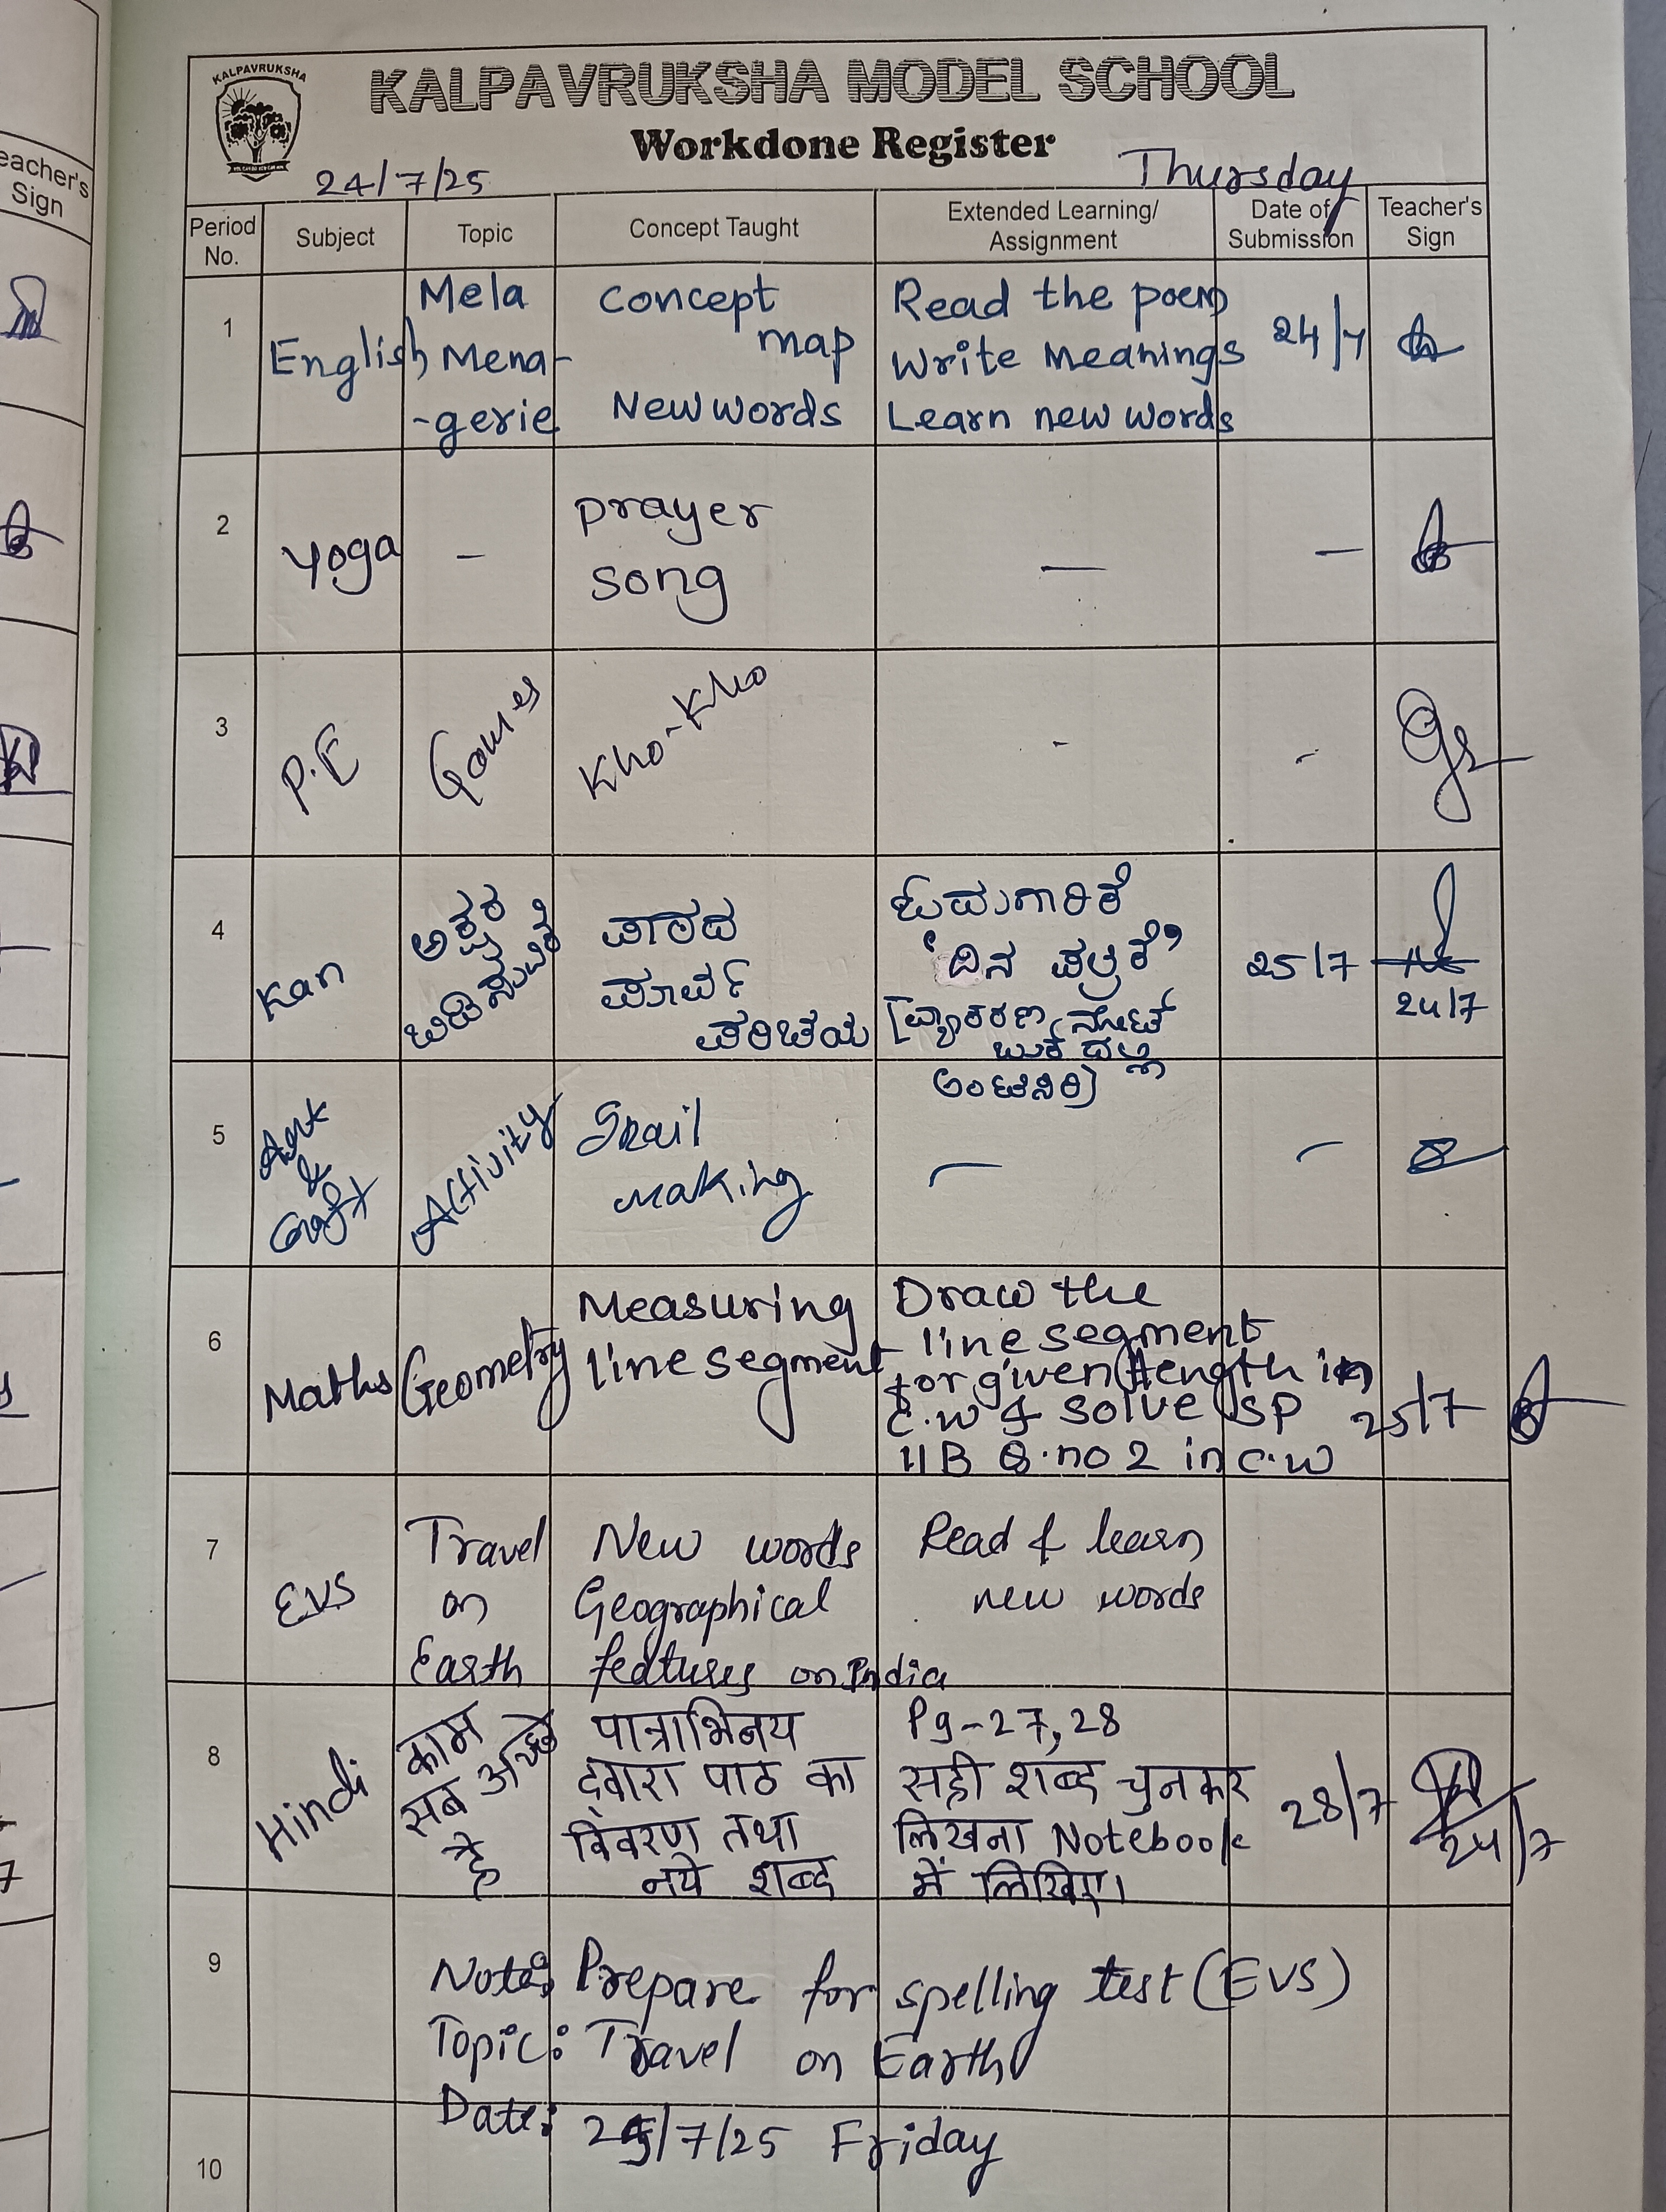 eacher's
Sign
KALPAVRUKSHA
KALPAVRUKSHA MODEL SCHOOL
Workdone Register
24/7/25
Thursday
Period No.
Subject
Topic
Concept Taught
Extended Learning/ Assignment
Date of Submission
Teacher's Sign
1
English
Mela
Mena-
-gerie
Concept
map
New words
Read the poem
Write Meanings
Learn new words
24/7
2
Yoga
-
prayer
song
—
—
3
P.E
Games
Kho-Kho
-
-
4
Kan
ಪಾಠದ
ಪೂರ್ವ
ಪರಿಚಯ
'ದಿನ ಪತ್ರಿಕೆ'
[ವ್ಯಾಕರಣ ನೋಟ್
ಬುಕ್ ದಲ್ಲಿ
ಅಂಟಿಸಿರಿ]
25/7
24/7
5
Art
&
Craft
Activity
Snail
making
—
-
6
Maths
Geometry
Measuring
line segment
Draw the
line segment
for given length in
C.W & solve SP
11B Q.no 2 in C.W
25/7
7
EVS
Travel
on
Earth
New words
Geographical
features on India
Read & learn
new words
8
Hindi
काम
सब अच्छे
है
पात्राभिनय
द्वारा पाठ का
विवरण तथा
नये शब्द
Pg-27,28
सही शब्द चुनकर
लिखना Notebook
में लिखिए।
28/7
24/7
9
Note: Prepare for spelling test (EVS)
Topic: Travel on Earth
Date: 25/7/25 Friday
10